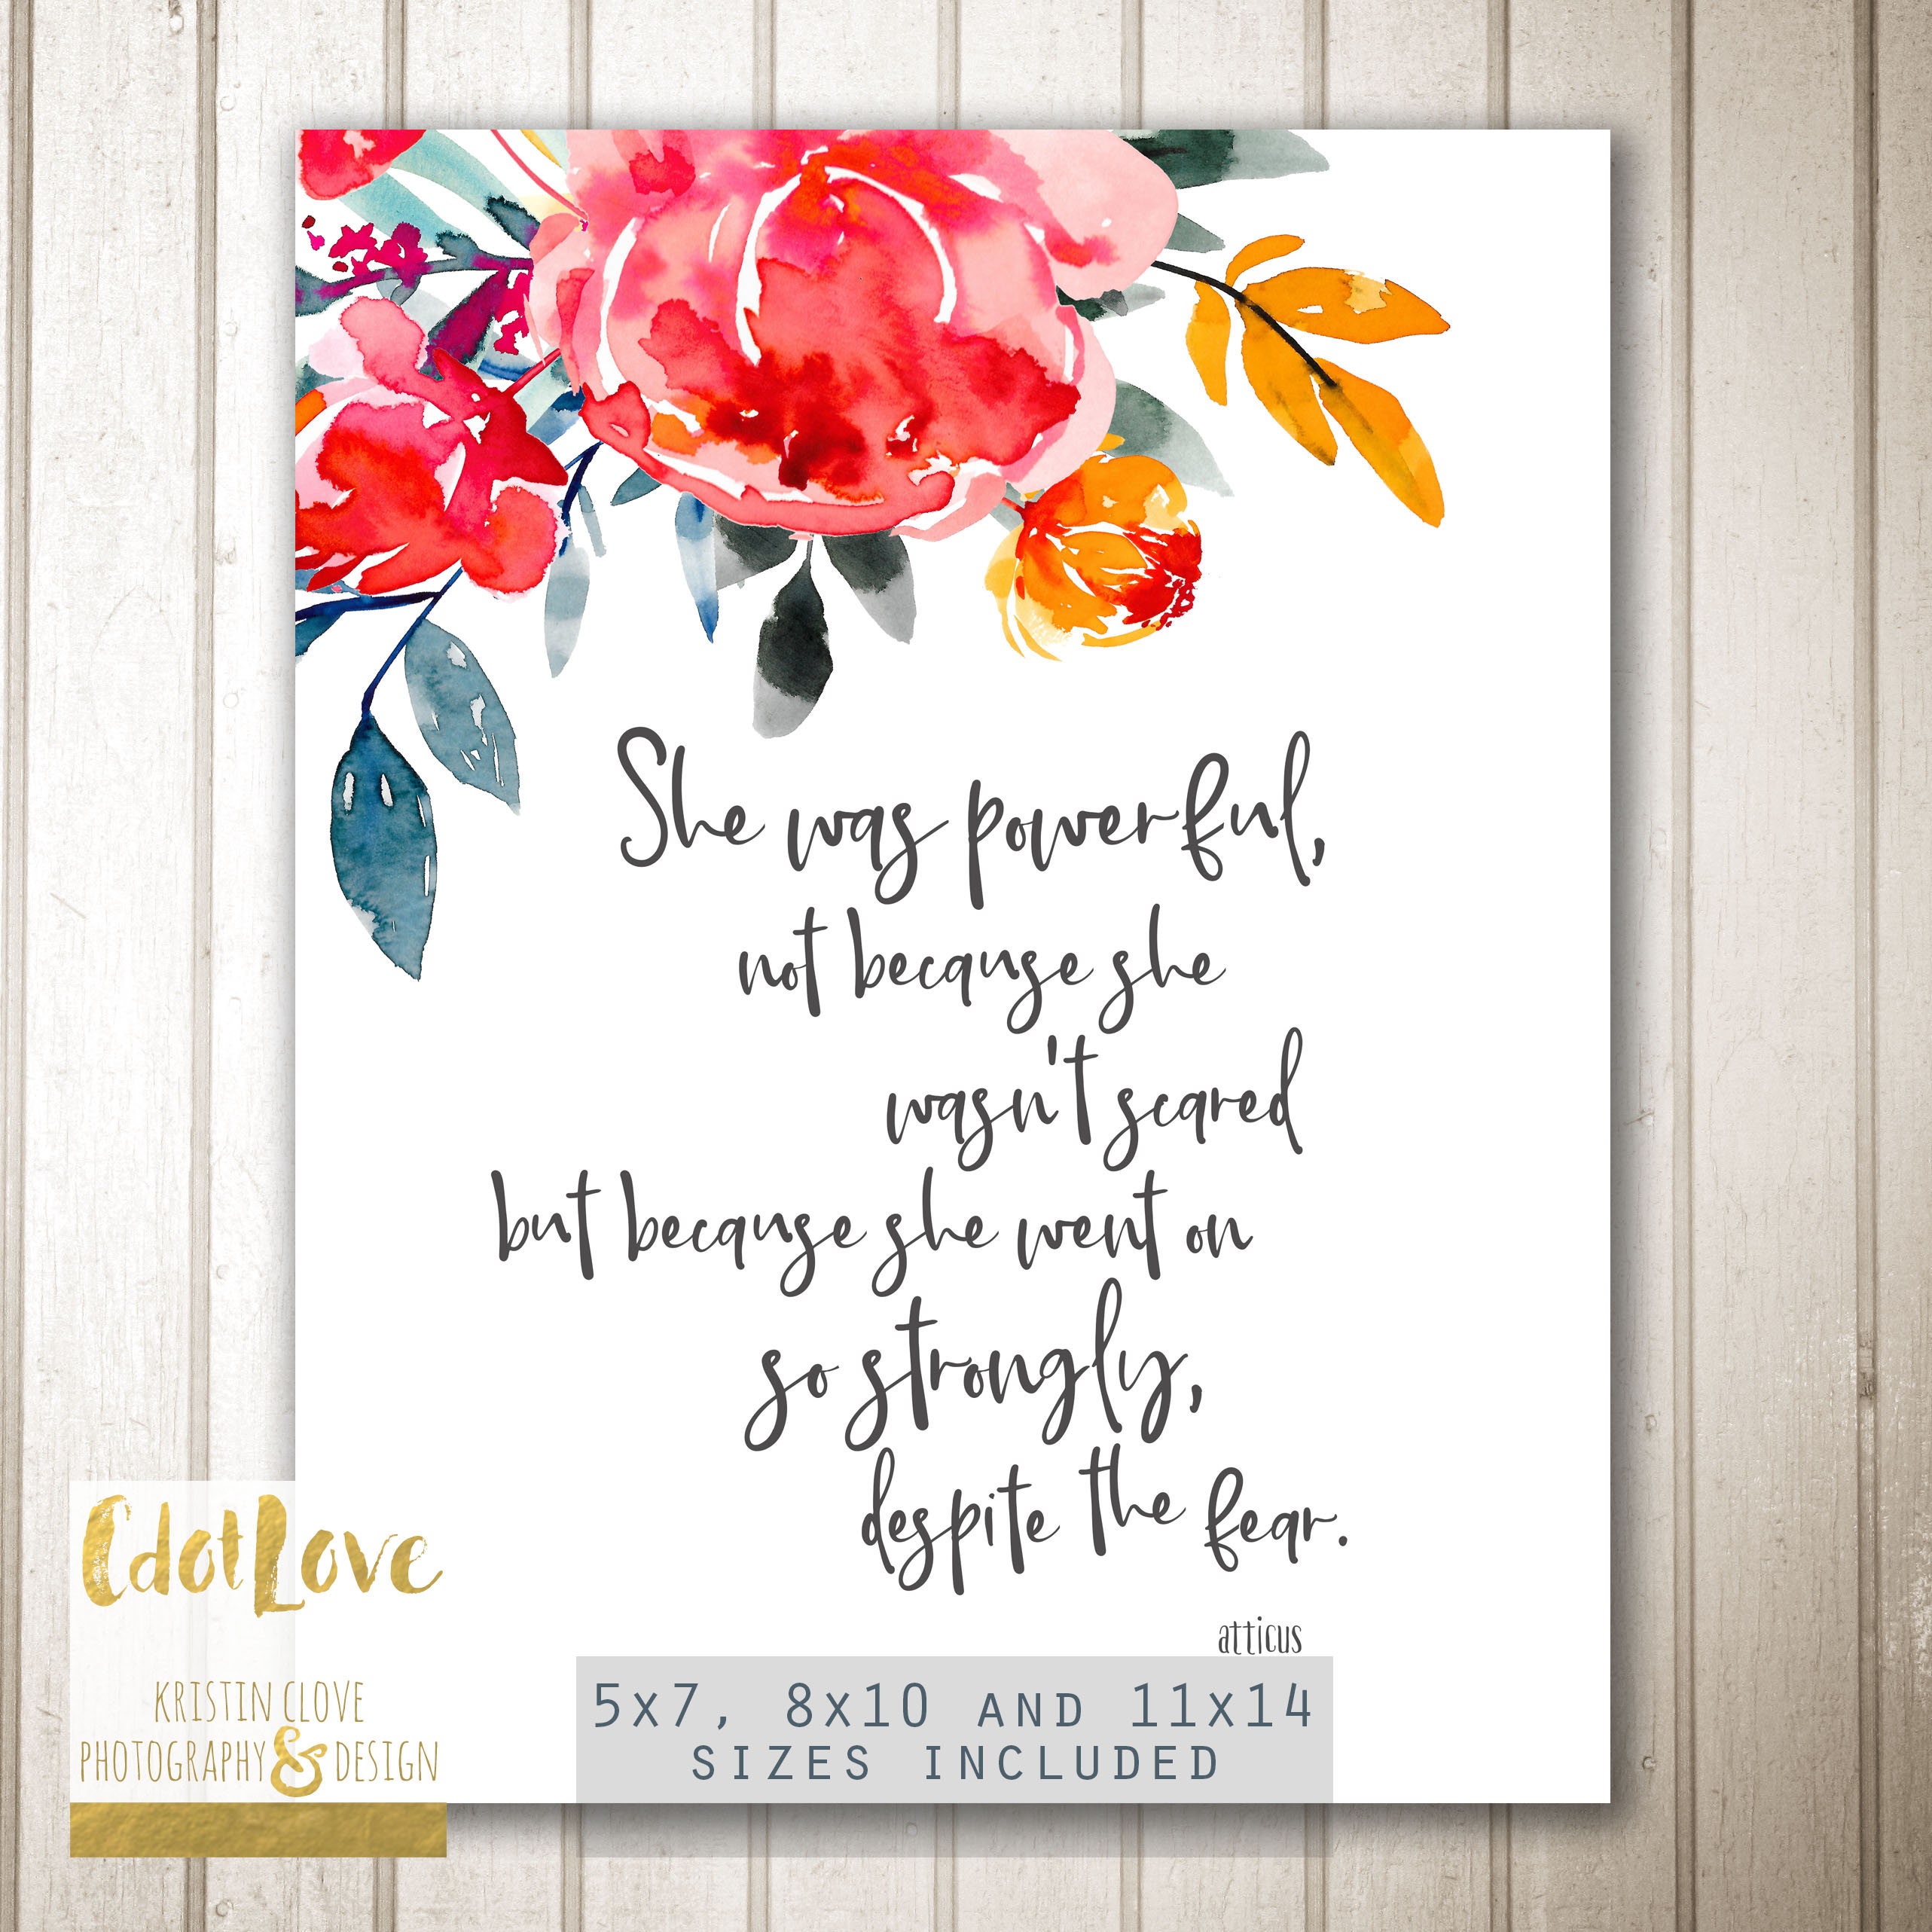 She was powerful,
not because she
wasn't scared
but because she went on
so strongly,
despite the fear.
atticus
CdotLove
KRISTIN CLOVE
PHOTOGRAPHY & DESIGN
5x7, 8x10 AND 11x14
SIZES INCLUDED